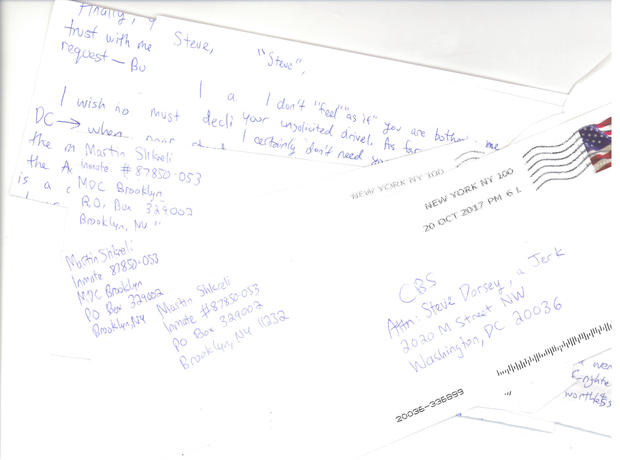 Finally,
trust with me
request – Bu
Steve,
"Steve",
I a
I don't "feel" as if you are bothering me
I wish no
must decli
your unsolicited drivel. As far
DC → when
I certainly don't need you
the m
the A
is a
Martin Shkreli
Inmate #87850-053
MDC Brooklyn
P.O. Box 329002
Brooklyn, NY 11
Martin Shkreli
Inmate 87850-053
MDC Brooklyn
PO Box 329002
Brooklyn, NY
Martin Shkreli
Inmate #87850-053
PO Box 329002
Brooklyn, NY 11232
NEW YORK NY 100
NEW YORK NY 100
20 OCT 2017 PM 6 L
CBS
Attn: Steve Dorsey, a Jerk
2020 M Street NW
Washington, DC 20036
20036-336899
worthless